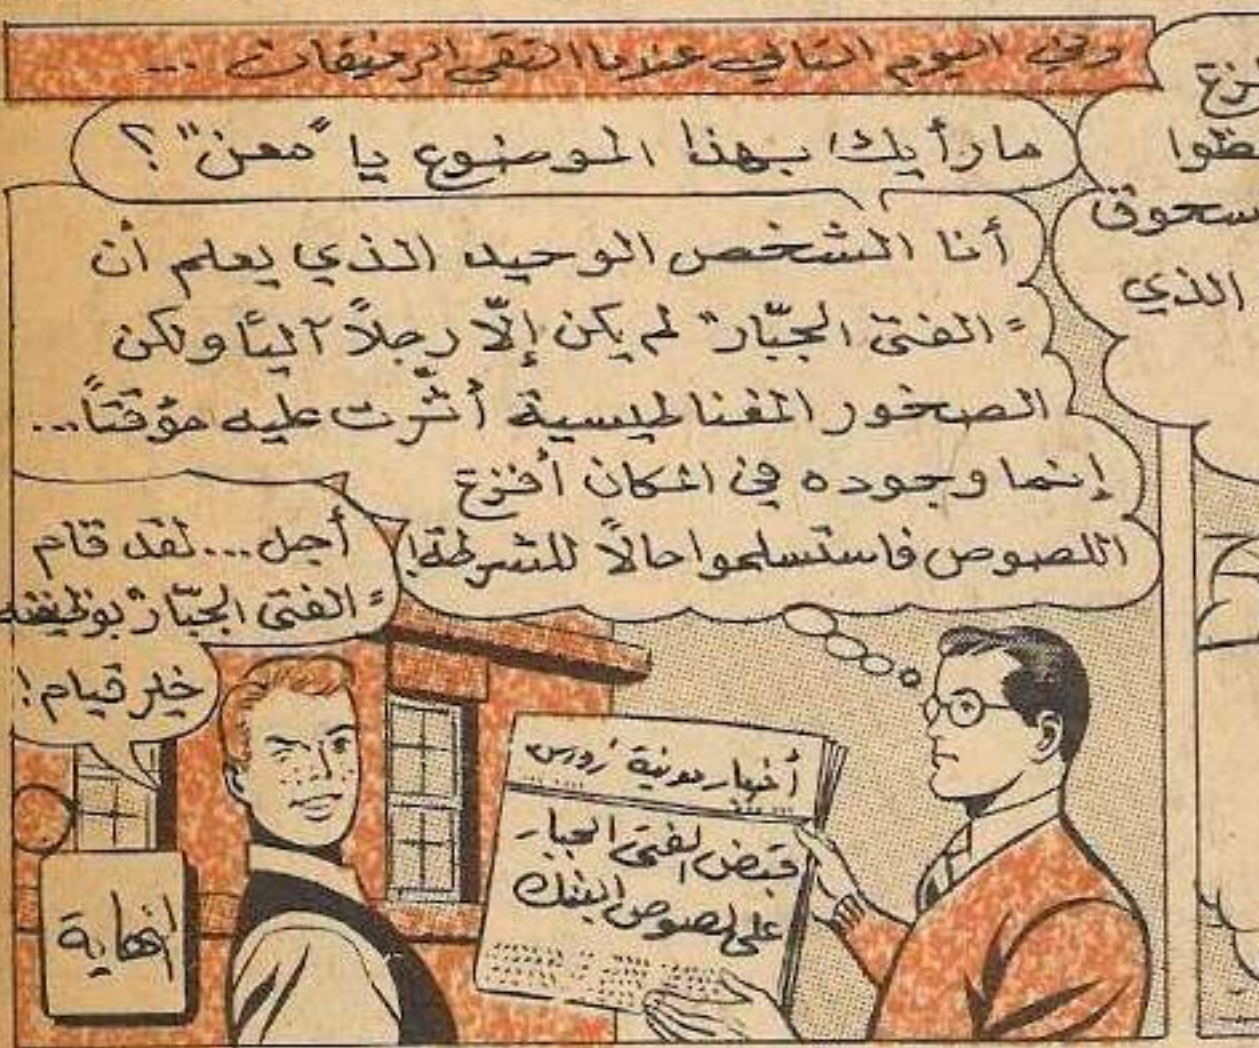 وفي اليوم التالي عندما التقى الرفيقان ...
ما رأيك بهذا الموضوع يا "معن"؟
أنا الشخص الوحيد الذي يعلم أن
"الفتى الجبّار" لم يكن إلّا رجلاً آليًا ولكن
الصخور المغناطيسية أثّرت عليه مؤقتاً...
إنما وجوده في المكان أفزع
اللصوص فاستسلموا حالاً للشرطة!
أجل... لقد قام
"الفتى الجبّار" بوظيفته
خير قيام!
أخبار مدينة زورس
قبض الفتى الجبار
على لصوص البنك
النهاية
سحوق
الذي